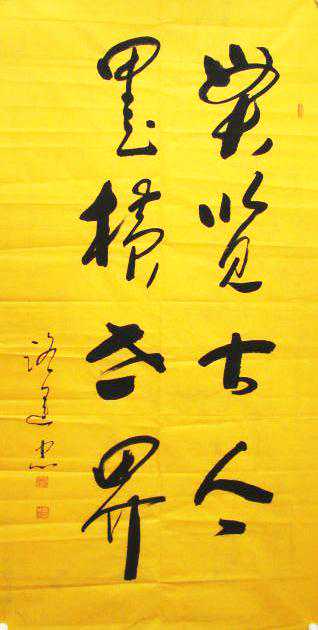 笑览古今
墨横世界